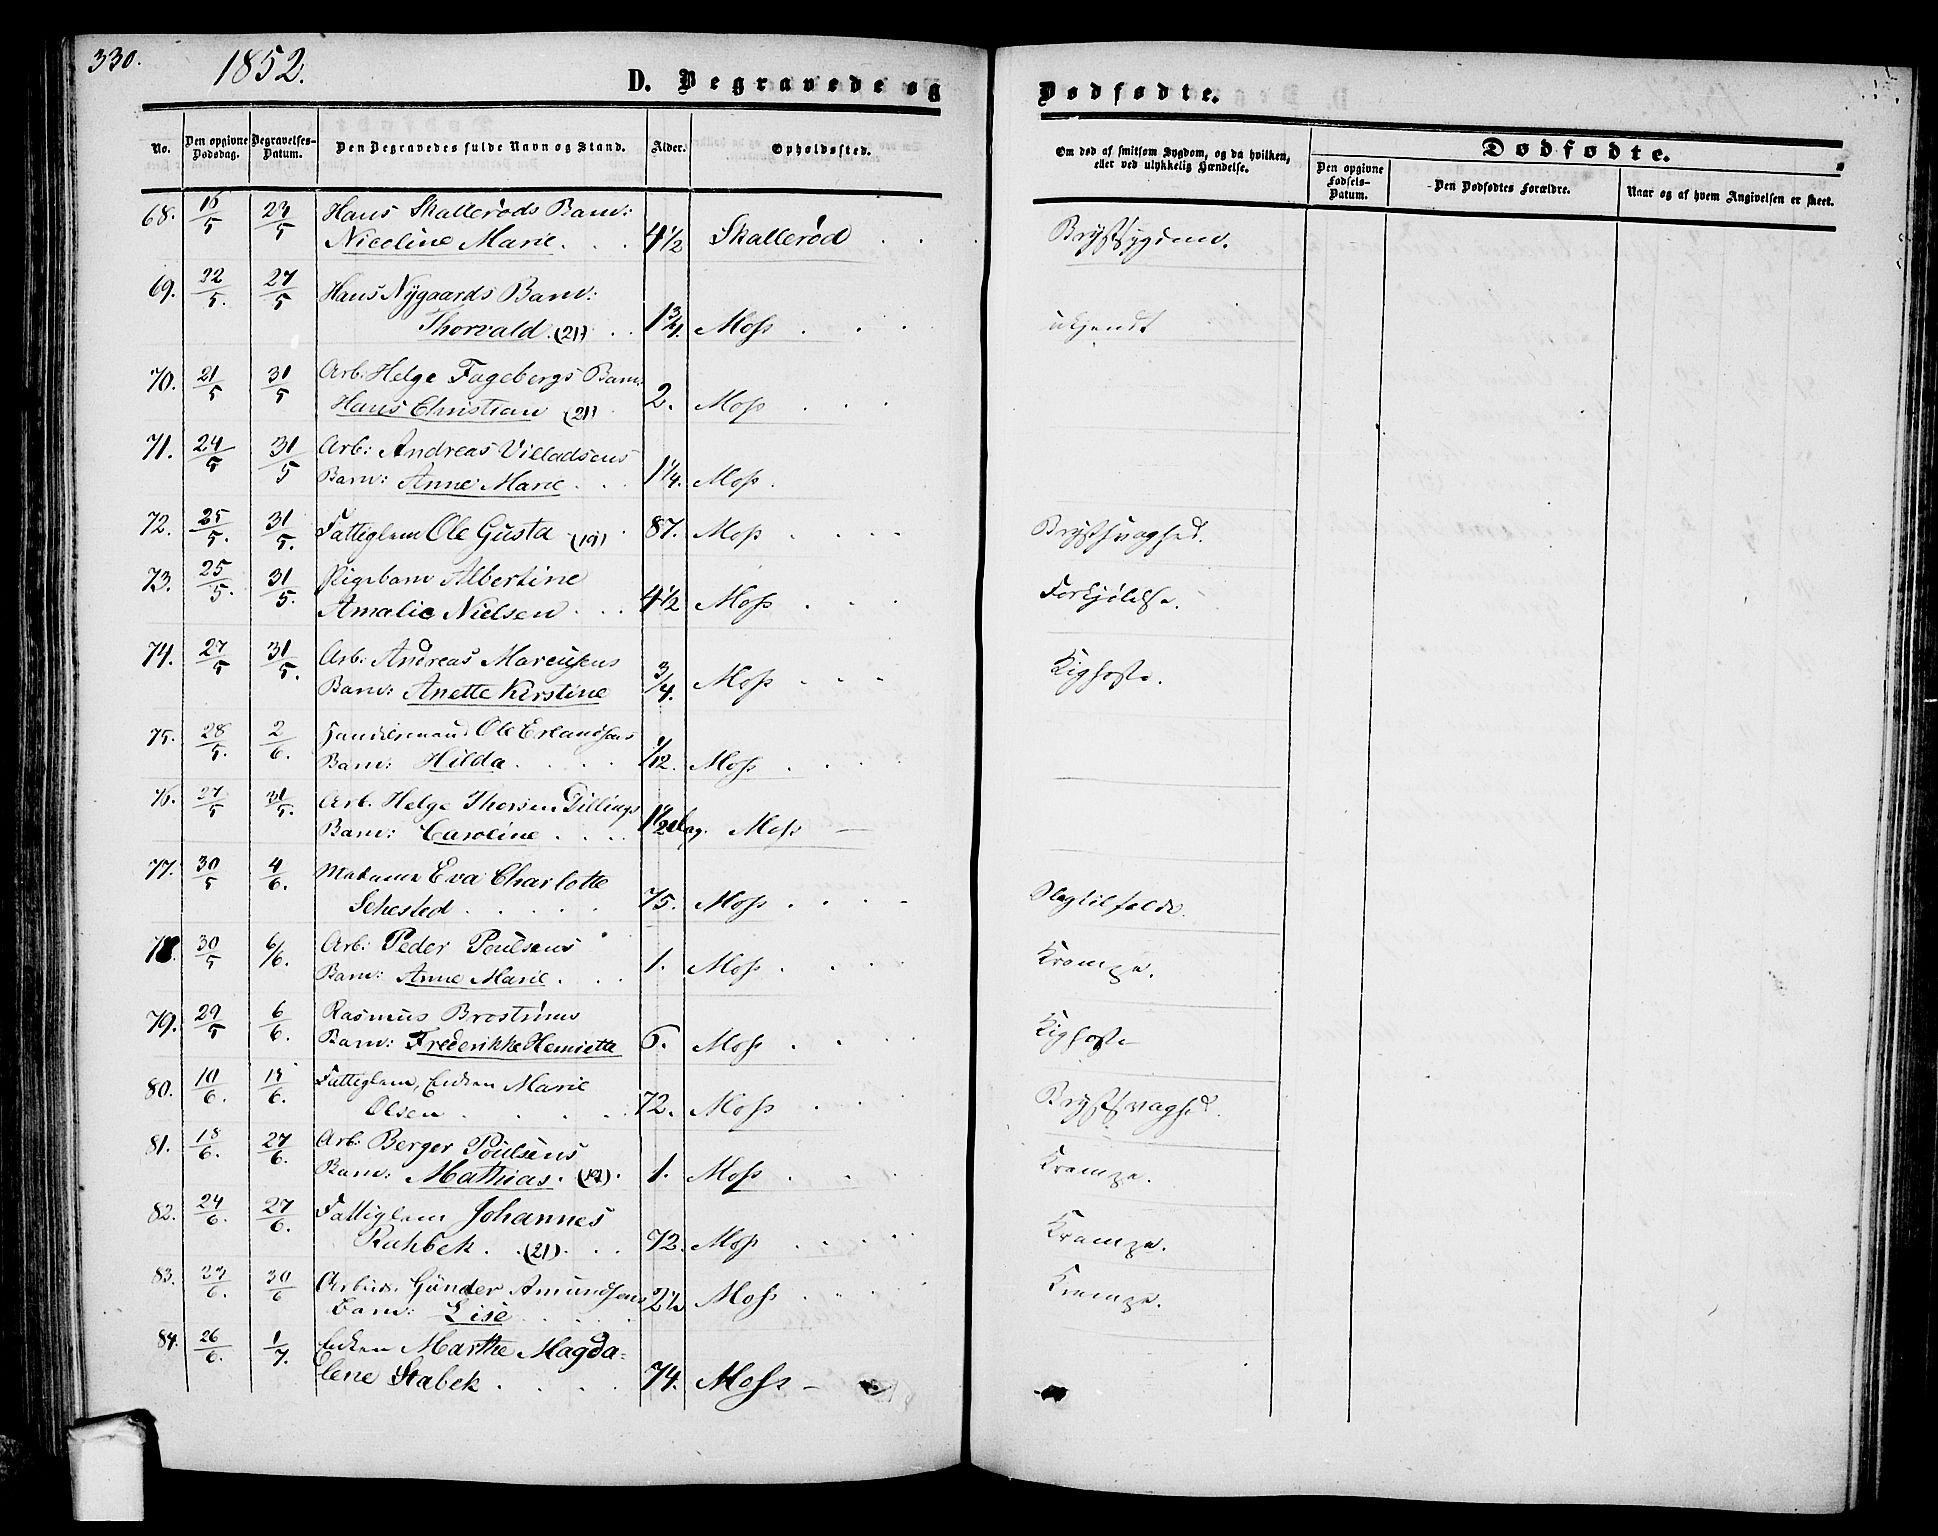 330.
1852.
D. Begravede og
Dødfødte.
No.
Den opgivne Dødsdag.
Begravelses-Datum.
Den Begravedes fulde Navn og Stand.
Alder.
Opholdssted.
Om død af smitsom Sygdom, og da hvilken, eller ved ulykkelig Hændelse.
Dødfødte.
Den opgivne Fødsels-Datum.
Den Dødfødtes Forældre.
Naar og af hvem Angivelsen er skeet.
68. 16/5 23/5 Hans Skallerøds Barn:
Nicoline Marie. 4 1/2 Skallerød Brystsygdom.
69. 22/5. 27/5 Hans Nygaards Barn:
Thorvald. (21) 1 3/4. Moss ukjendt
70. 21/5 31/5 Arb: Helge Fagebergs Barn:
Hans Christian (21) 2. Moss
71. 24/5 31/5 Arb: Andreas Villadsens
Barn: Anne Marie 1 1/4. Moss.
72. 25/5. 31/5. Fattiglem Ole Gusta (19) 87. Moss Brystsvaghed.
73. 25/5. 31/5. Pigebarn Albertine
Amalie Nielsen 4 1/2 Moss Forkjølelse.
74. 27/5 31/5. Arb: Andreas Marcusens
Barn: Anette Kirstine 3/4. Moss Kighoste.
75. 28/5. 2/6. Handelsmand Ole Erlandsens
Barn: Hilda. 1/12. Moss
76. 27/5 31/5. Arb. Helge Thorsen Dillings
Barn: Caroline Moss
77. 30/5 4/6. Madame Eva Charlotte
Sehested 75. Moss Slagtilfælde.
78. 30/5 6/6. Arb: Peder Poulsens
Barn: Anne Marie 1. Moss Krampe.
79. 29/5 6/6. Rasmus Brostrøms
Barn: Frederikke Henriette 6. Moss Kighoste
80. 10/6. Fattiglem, Enken Marie
Olsen 72. Moss Brystsvaghed.
81. 18/6. 27/6. Arb: Berger Poulsens
Barn: Mathias. 1. Moss Krampe.
82. 24/6. 27/6. Fattiglem Johannes
Rahbek. (21) 72. Moss Krampe.
83. 30/6 Arbeids. Gunder Amundsens
Barn: Lise 2 1/2 Moss Krampe.
84. 26/6. 1/7. Enken Marthe Magda-
lene Stabek 74. Moss